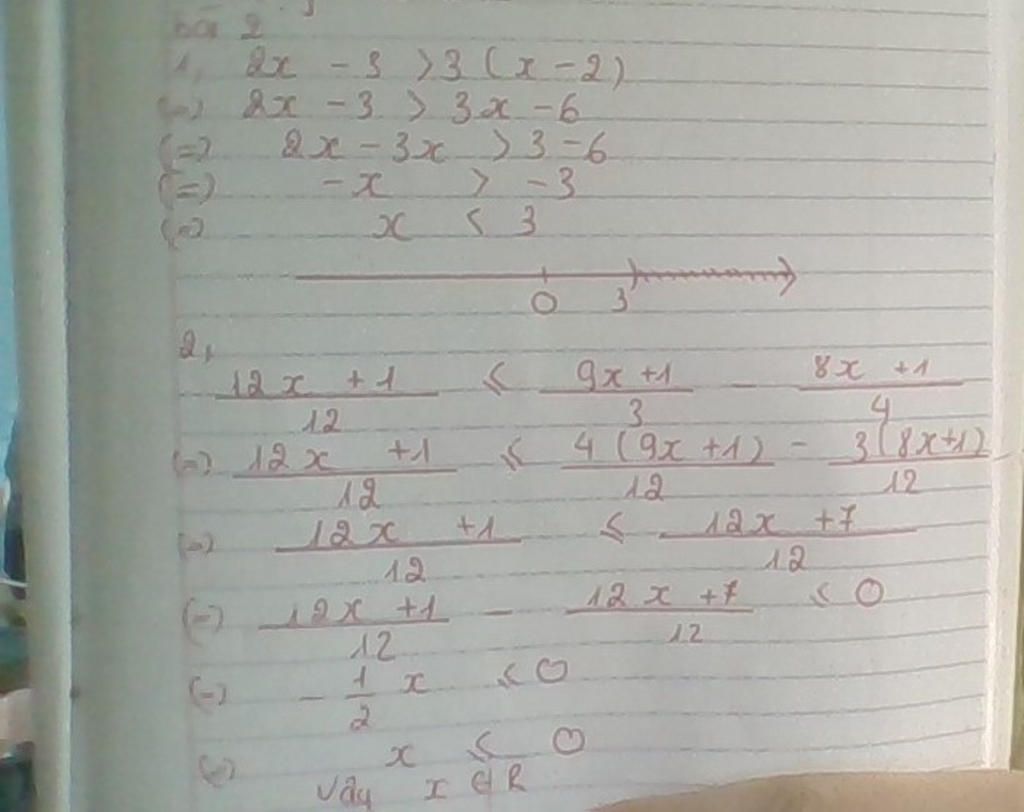 bài 2
1, 2x - 3 > 3 (x - 2)
(=) 2x - 3 > 3x - 6
(=) 2x - 3x > 3 - 6
(=) -x > -3
(=) x < 3
0 3
2,
\frac{12x + 1}{12} ≤ \frac{9x + 1}{3} - \frac{8x + 1}{4}
(=) \frac{12x + 1}{12} ≤ \frac{4(9x + 1)}{12} - \frac{3(8x + 1)}{12}
(=) \frac{12x + 1}{12} ≤ \frac{12x + 7}{12}
(=) \frac{12x + 1}{12} - \frac{12x + 7}{12} ≤ 0
(=) - \frac{1}{2} x ≤ 0
(=) x ≤ 0
vậy x ∈ R